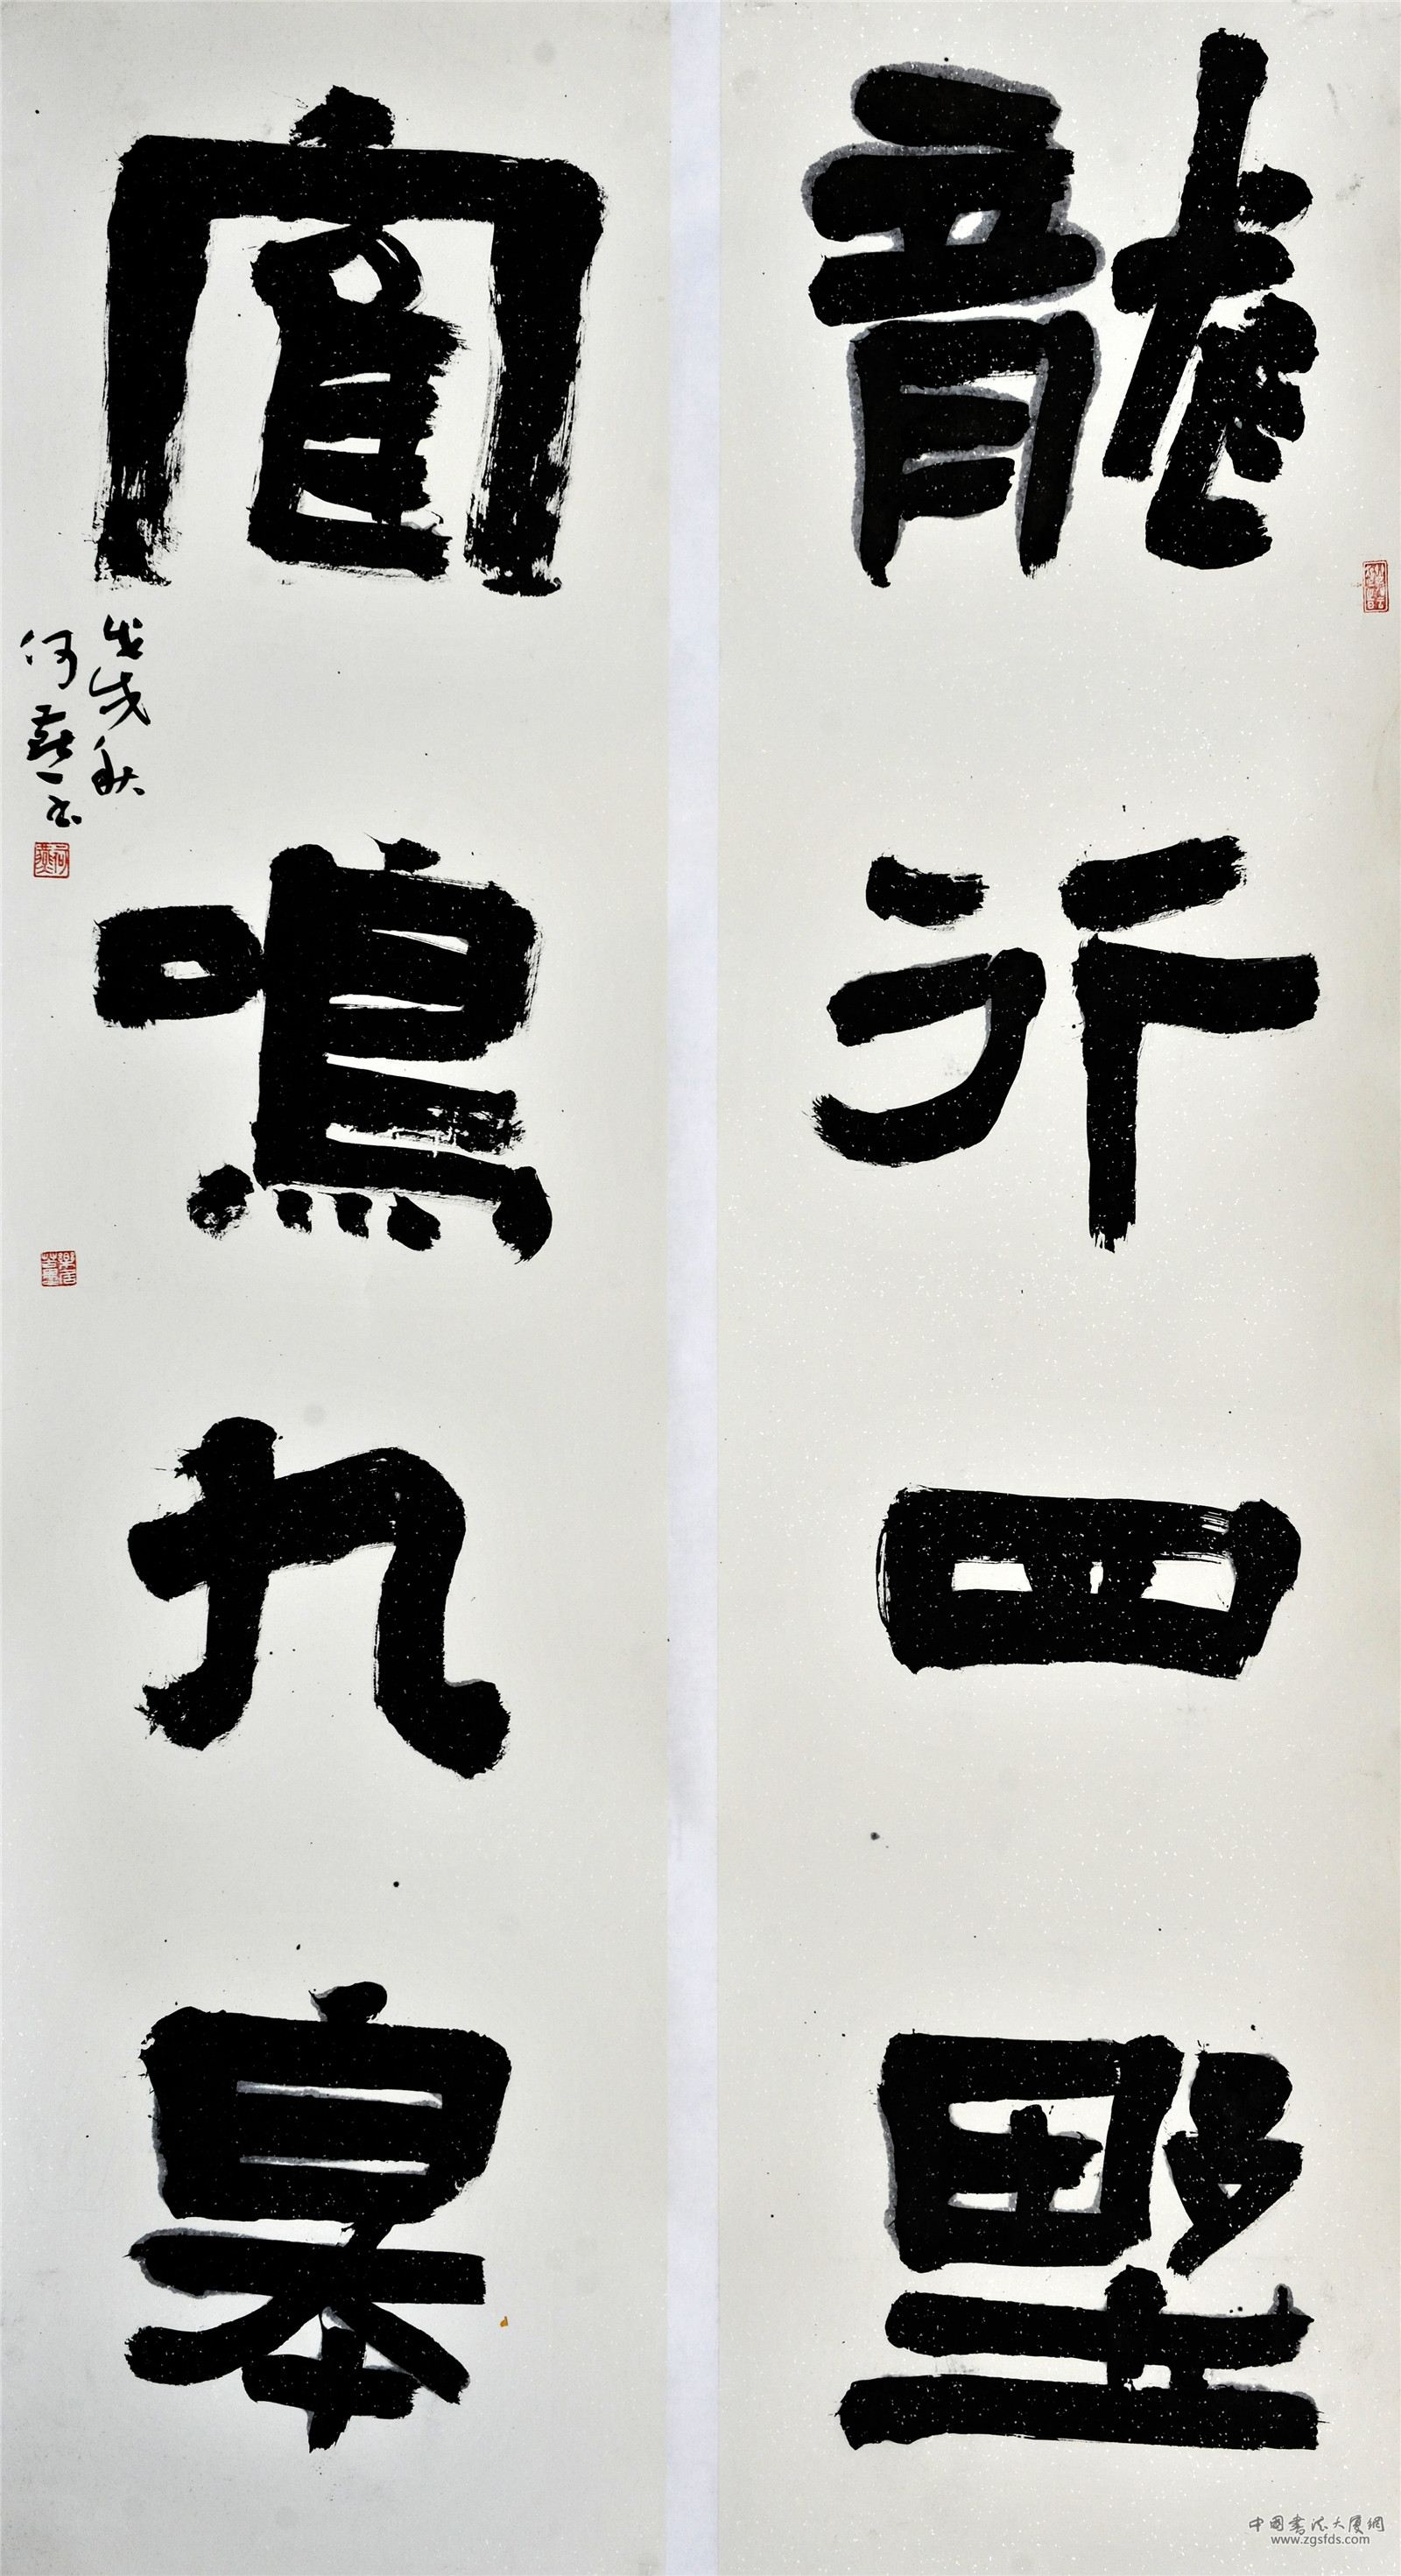 龍行四野
寉鳴九皋
戊戌秋
何燕书
何燕
中國書法大廈網
www.zgsfds.com